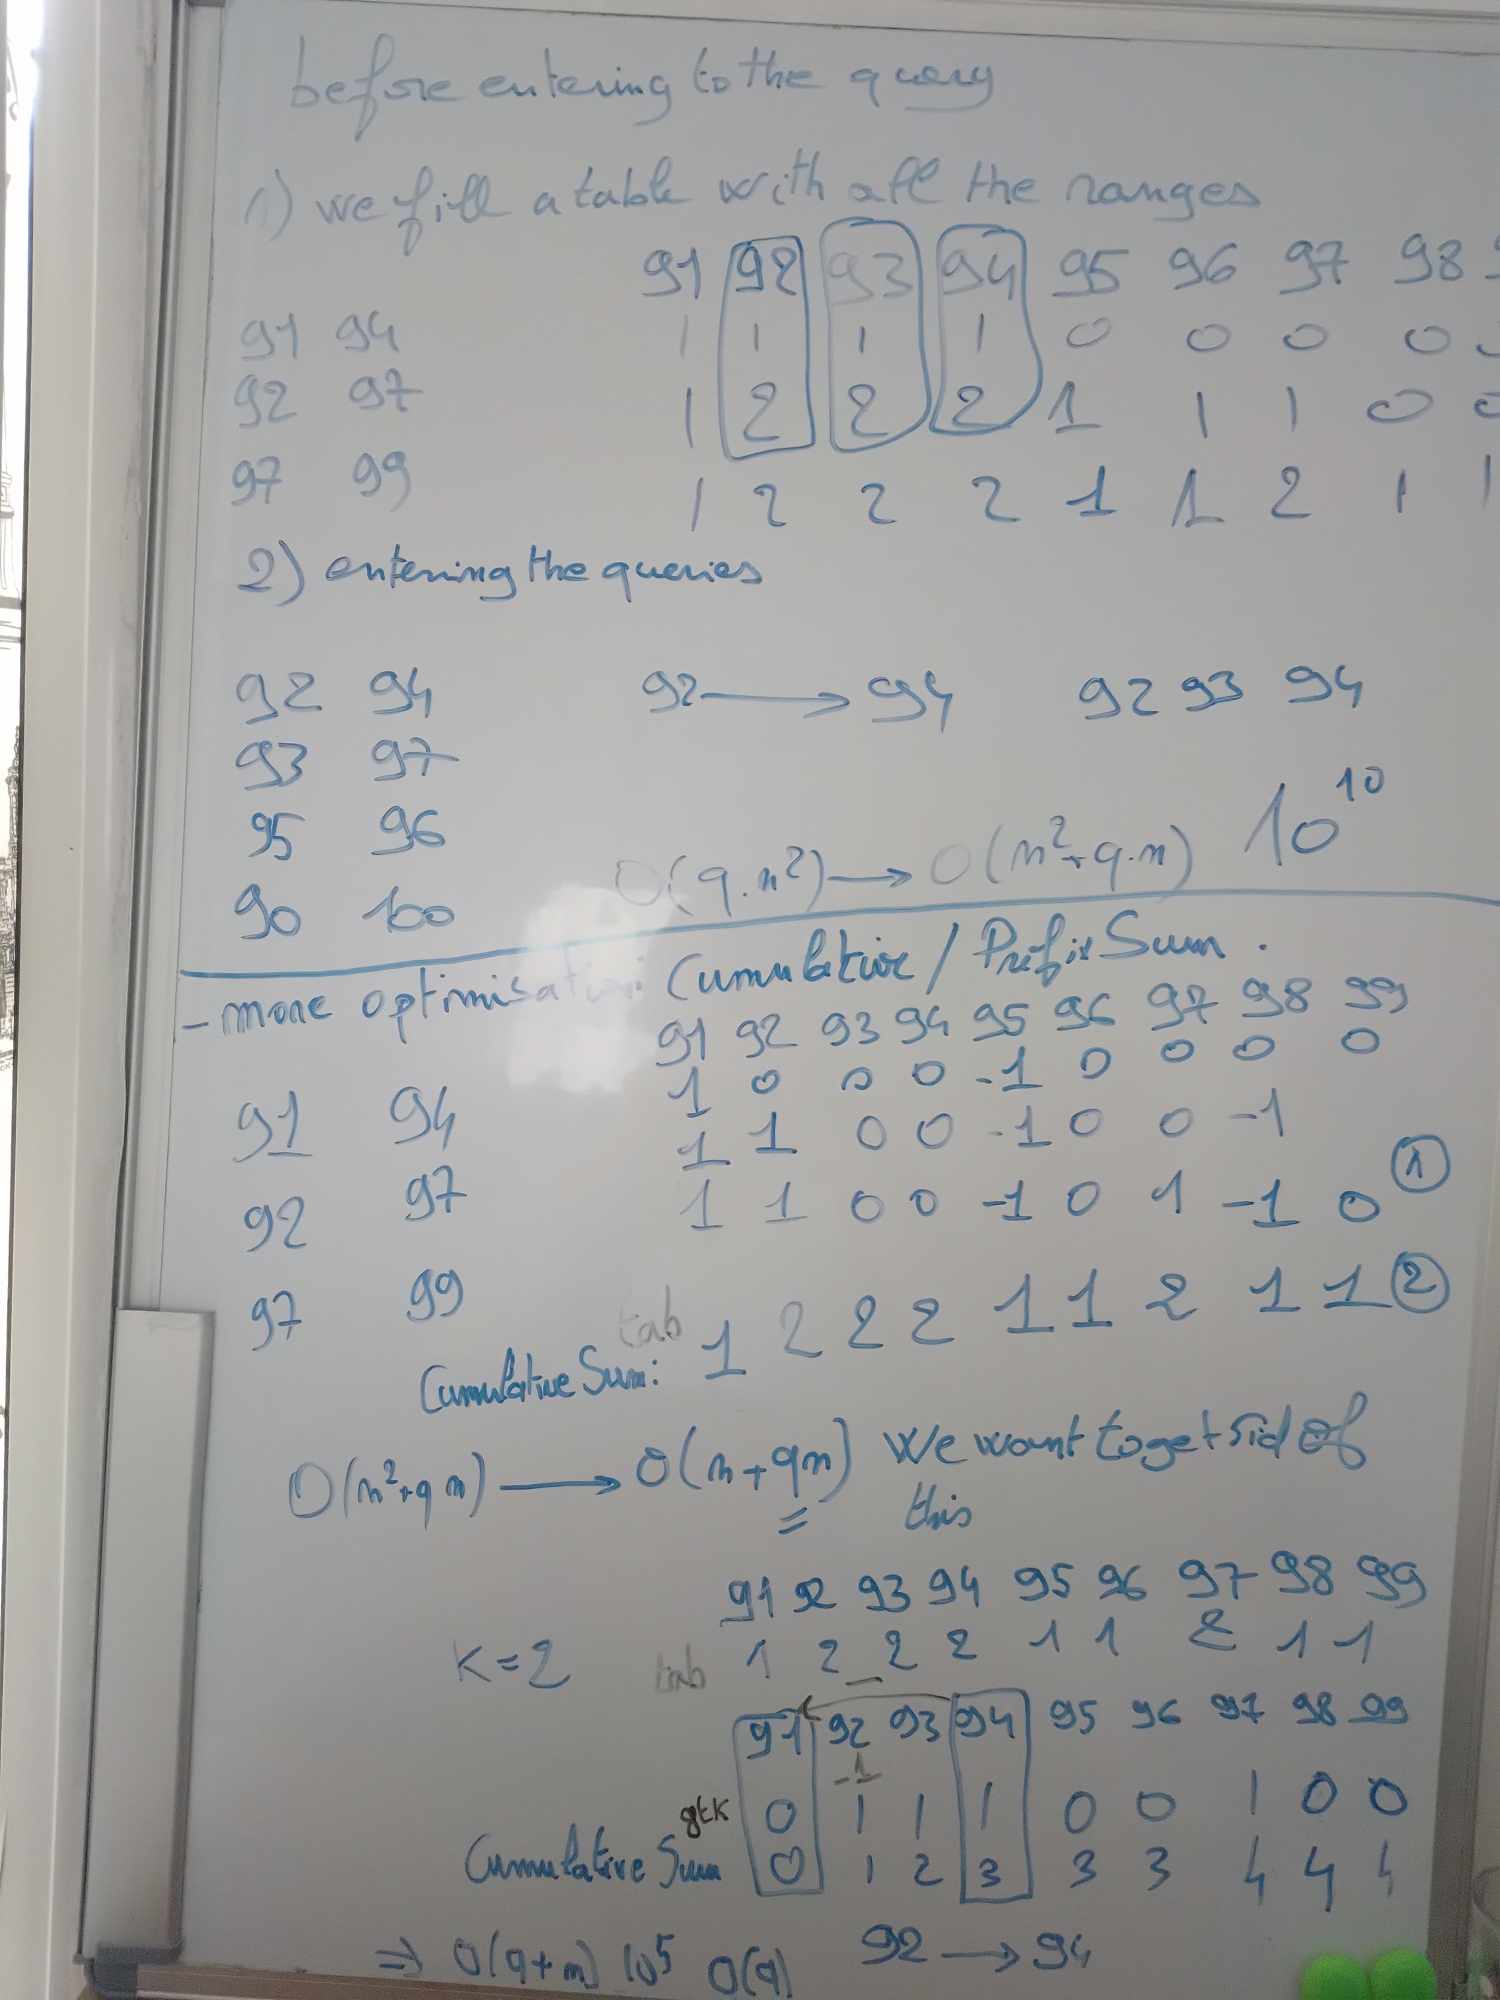 before entering to the query
1) we fill a table with all the ranges
91 92 93 94 95 96 97 98
91 94 1 1 1 1 0 0 0 0
92 97 1 2 2 2 1 1 1 0 0
97 99 1 2 2 2 1 1 2 1 1
2) entering the queries
92 94 92 → 94 92 93 94
93 97
95 96 O(q.n²) → O(n²+q.n) 10¹⁰
90 100
- more optimisation: Cumulative / Prefix Sum.
91 92 93 94 95 96 97 98 99
1 0 0 0 -1 0 0 0 0
91 94 1 1 0 0 -1 0 0 -1
92 97 1 1 0 0 -1 0 1 -1 0 ①
97 99 tab
Cumulative Sum: 1 2 2 2 1 1 2 1 1 ②
O(n²+qn) → O(n+qn) We want to get rid of
this
91 92 93 94 95 96 97 98 99
K=2 tab 1 2 2 2 1 1 2 1 1
91 92 93 94 95 96 97 98 99
-1
gtk 0 1 1 1 0 0 1 0 0
Cumulative Sum 0 1 2 3 3 3 4 4 4
⇒ O(q+n) 10⁵ O(q) 92 → 94